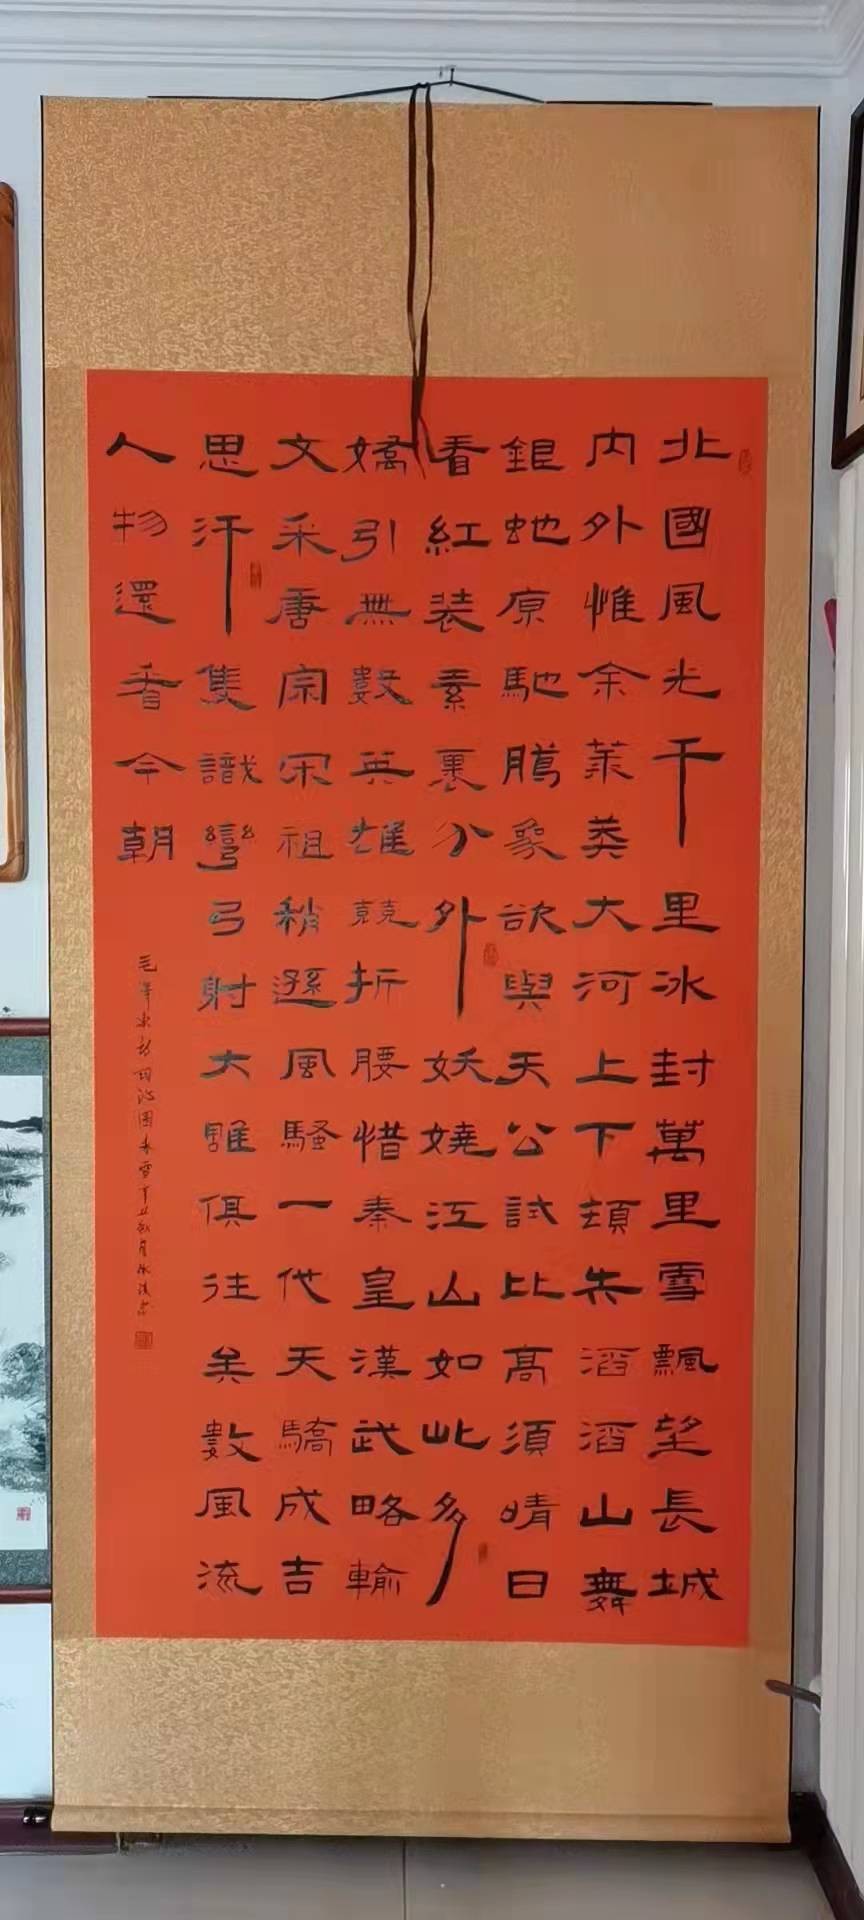 北國風光千里冰封萬里雪飄望長城
内外惟余莽莽大河上下頓失滔滔山舞
銀蛇原馳臘象欲與天公試比高須晴日
看紅装素裹分外妖嬈江山如此多
嬌引無數英雄競折腰惜秦皇漢武略輸
文采唐宗宋祖稍遜風騷一代天驕成吉
思汗隻識彎弓射大雕俱往矣數風流
人物還看今朝
毛澤東詩詞沁園春雪辛丑秋月